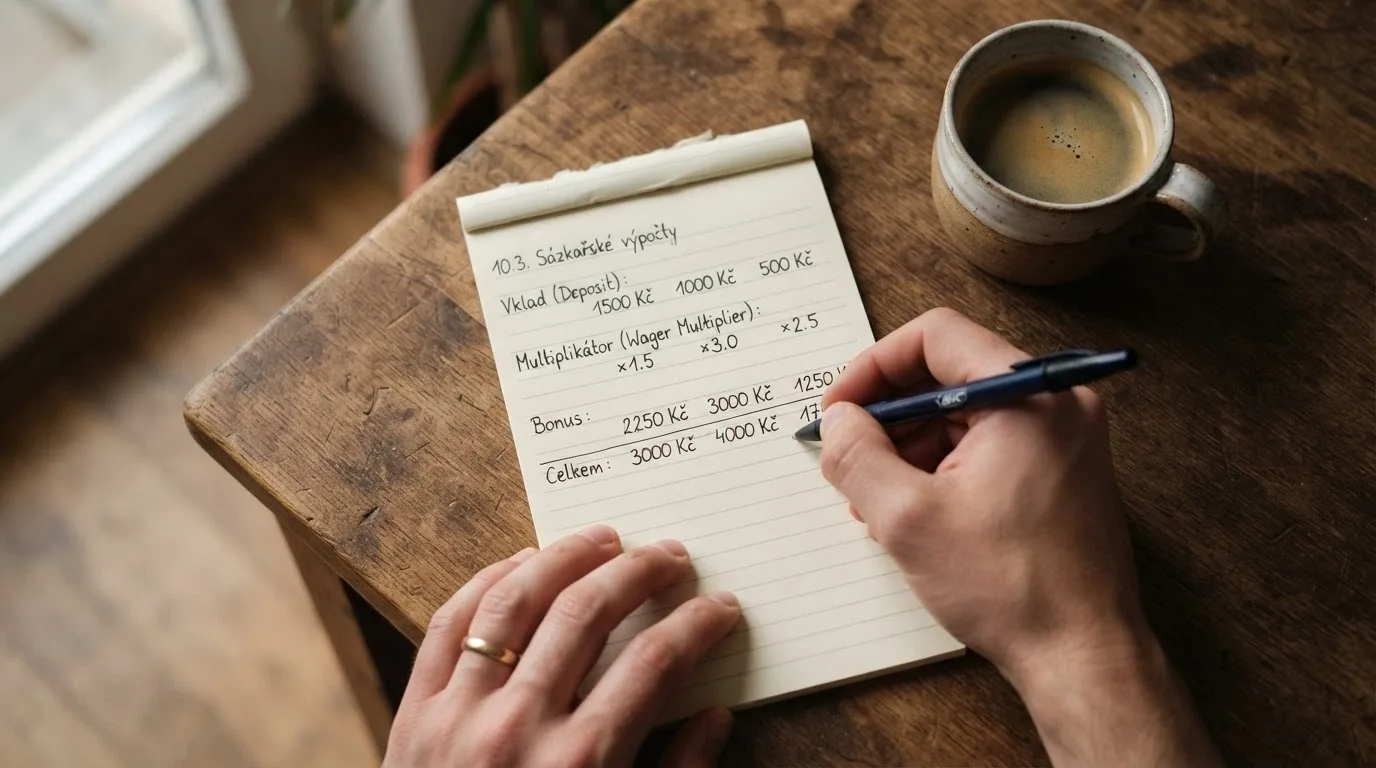 10.3. Sázkařské výpočty
Vklad (Deposit):
1500 Kč 1000 Kč 500 Kč
Multiplikátor (Wager Multiplier):
×1.5 ×3.0 ×2.5
Bonus: 2250 Kč 3000 Kč 1250
Celkem: 3000 Kč 4000 Kč